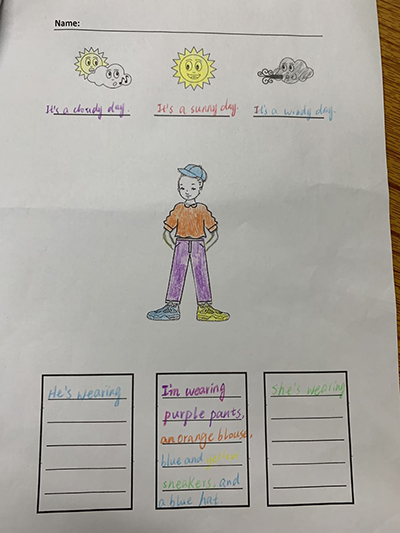 Name:
It's a cloudy day. It's a sunny day. It's a windy day.
He's wearing
I'm wearing
purple pants,
an orange blouse,
blue and yellow
sneakers, and
a blue hat.
She's wearing